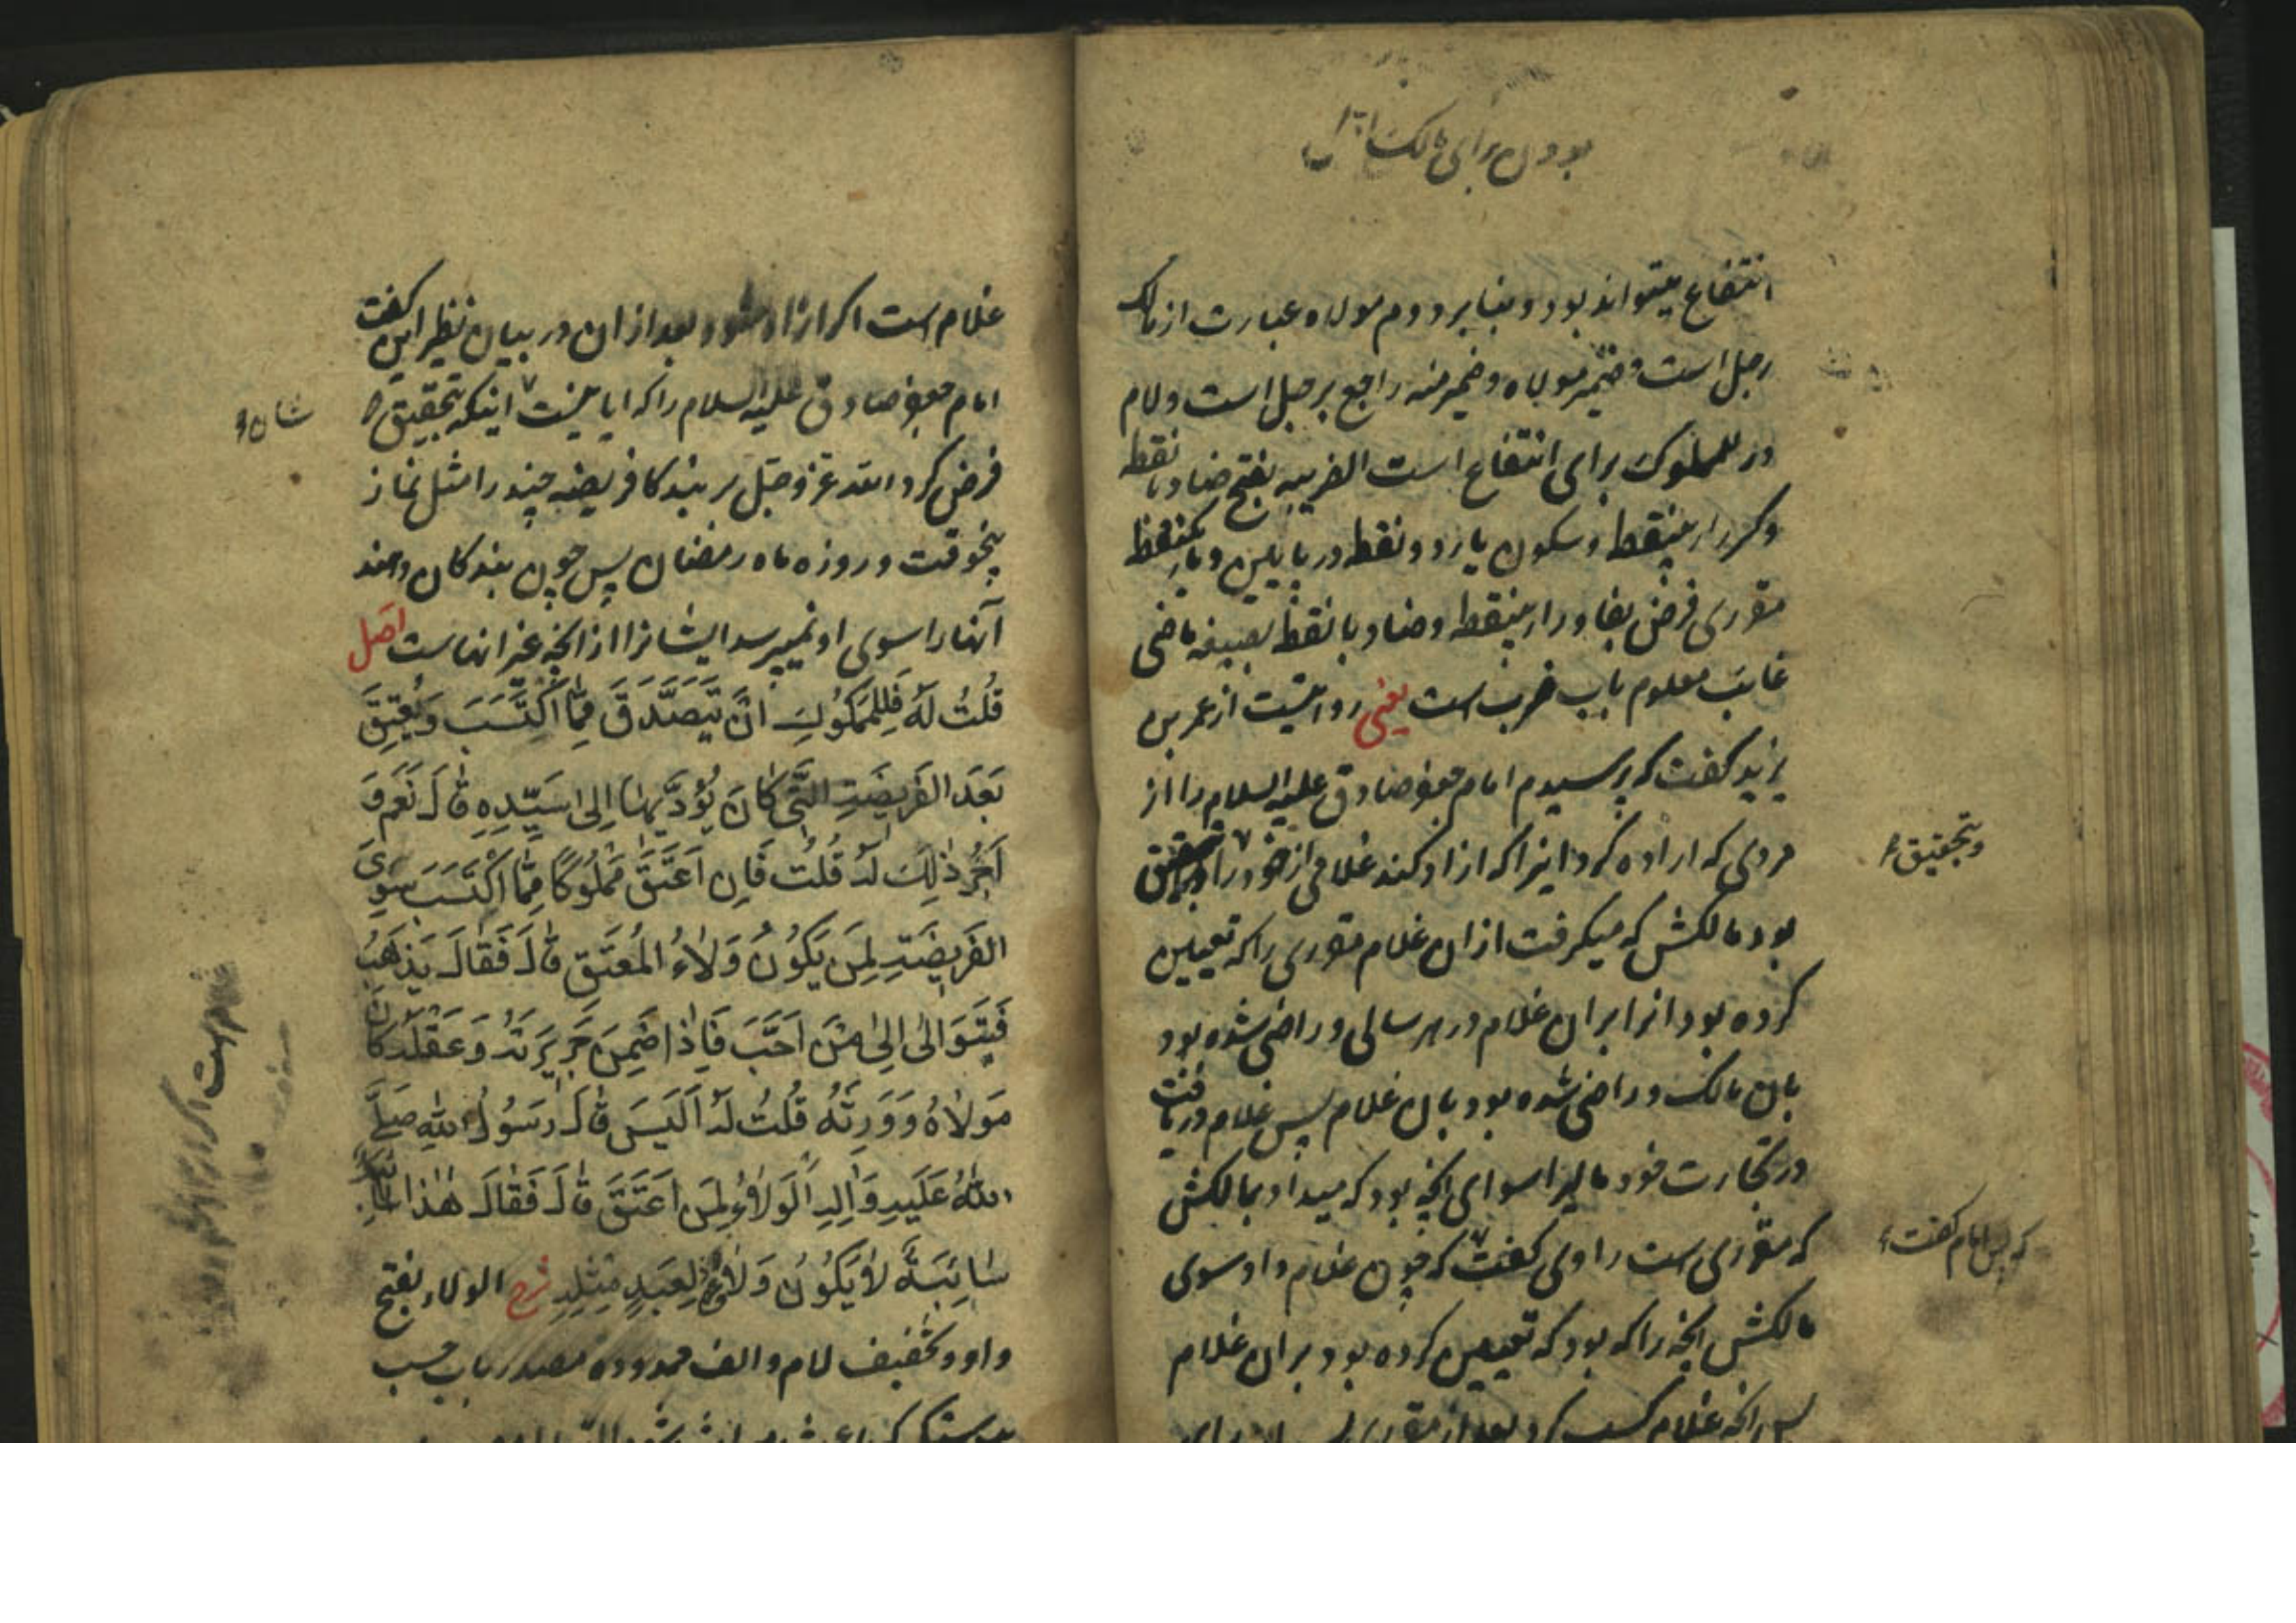 بودن برای مالک
انتفاع میتواند بود و بنابر دوم مولاه عبارت از مالک
رجل است و ضمیر مولاه و ضمیر منه راجع برجل است و لام
در للمملوک برای انتفاع است الضریبه بفتح ضاد با نقطه
و کسر را بینقطه و سکون یا دو نقطه در پایین و با یکنقطه
مقرری فرض بفا و را بینقطه و ضاد با نقطه بصیغه ماضی
غایب معلوم باب ضرب است یعنی روایتست از عمر بن
یزید گفت که پرسیدم امام جعفر صادق علیه السلام را از
مردی که اراده کرد اینرا که ازاد کند غلامی از خود را و بتحقیق
وبتحقیق
بود مالکش که میکرفت از ان غلام مقرری را که تعیین
کرده بود انرا بر ان غلام در هر سالی و راضی شده بود
بان مالک و راضی شده بود بان غلام پس غلام دریافت
در تجارت خود مالیرا سوای انچه بود که میداد بمالکش
که مقرری است راوی گفت که چون غلام داد سوی
که پس امام گفت
مالکش انچه را که بود که تعیین کرده بود بر ان غلام
پس انچه غلام کسب کرد بعد از مقرری
غلام است اکر ازاد شود بعد از ان در بیان نظیر این گفت
امام جعفر صادق علیه السلام را که ایا نیست اینکه بتحقیق
فرض کرد الله عز و جل بر بندکا فریضه چند را مثل نماز
پنجوقت و روزه ماه رمضان پس چون بندکان دهند
آنها را سوی او نمیپرسد ایشانرا از انچه غیر انهاست اصل
قُلْتُ لَهُ فَلِلْمَمْلُوكِ اَنْ يَتَصَدَّقَ مِمَّا اكْتَسَبَ وَيُعْتِقَ
بَعْدَ الفَرِيضَةِ الَّتِي كَانَ يُؤَدِّيهَا اِلى سَيِّدِهِ قَالَ نَعَمْ وَ
اَجْرُ ذٰلِكَ لَهُ قُلْتُ فَاِنْ اَعْتَقَ مَمْلُوكًا مِمَّا اكْتَسَبَ سِوَى
الفَرِيضَةِ لِمَنْ يَكُونُ وَلاءُ المُعْتَقِ قَالَ فَقَالَ يَذْهَبُ
فَيَتَوَالى اِلى مَنْ اَحَبَّ فَاِذَا ضَمِنَ جَرِيرَتَهُ وَعَقْلَهُ كَانَ
مَوْلاهُ وَوَرِثَهُ قُلْتُ لَهُ اَلَيْسَ قَالَ رَسُولُ اللهِ صَلَّى
اللهُ عَلَيْهِ وَآلِهِ الوَلاءُ لِمَنْ اَعْتَقَ قَالَ فَقَالَ هٰذَا
سَائِبَةٌ لا يَكُونُ وَلاؤُهُ لِعَبْدٍ مِثْلِهِ شرح الولاء بفتح
واو و تخفیف لام و الف ممدوده مصدر باب حسب